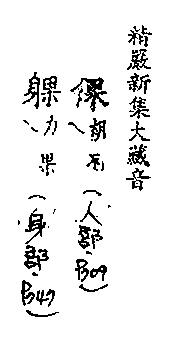 精嚴新集大藏音
倮胡瓦(人部.B09)
躶力果(身部.B47)